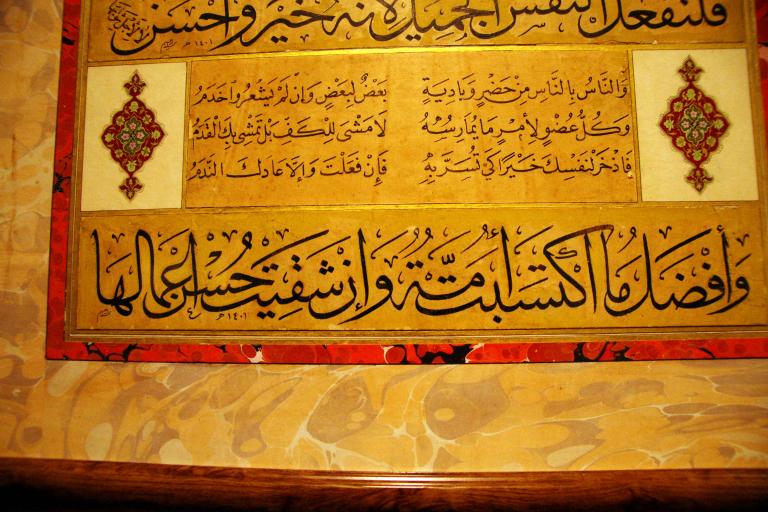 فلنفعل النفس الجميل لأنه خير وأحسن
١٤٠١ هـ
وَالنَّاسُ بِالنَّاسِ مِنْ حَضْرٍ وَبَادِيَةٍ بَعْضٌ لِبَعْضٍ وَإِنْ لَمْ يَشْعُرُوا خَدَمُ
وَكُلُّ عُضْوٍ لِأَمْرٍ مَا يُمَارِسُهُ لَا مَشْيَ لِلْكَفِّ بَلْ تَمْشِي بِكَ الْقَدَمُ
فَاذْخَرْ لِنَفْسِكَ خَيْرًا كَيْ تُسَرَّ بِهِ فَإِنْ فَعَلْتَ وَإِلَّا عَادَكَ النَّدَمُ
وَأَفْضَلُ مَا اكْتَسَبَتْ أُمَّةٌ وَإِنْ شَقِيَتْ حُسْنُ أَعْمَالِهَا
١٤٠١ هـ